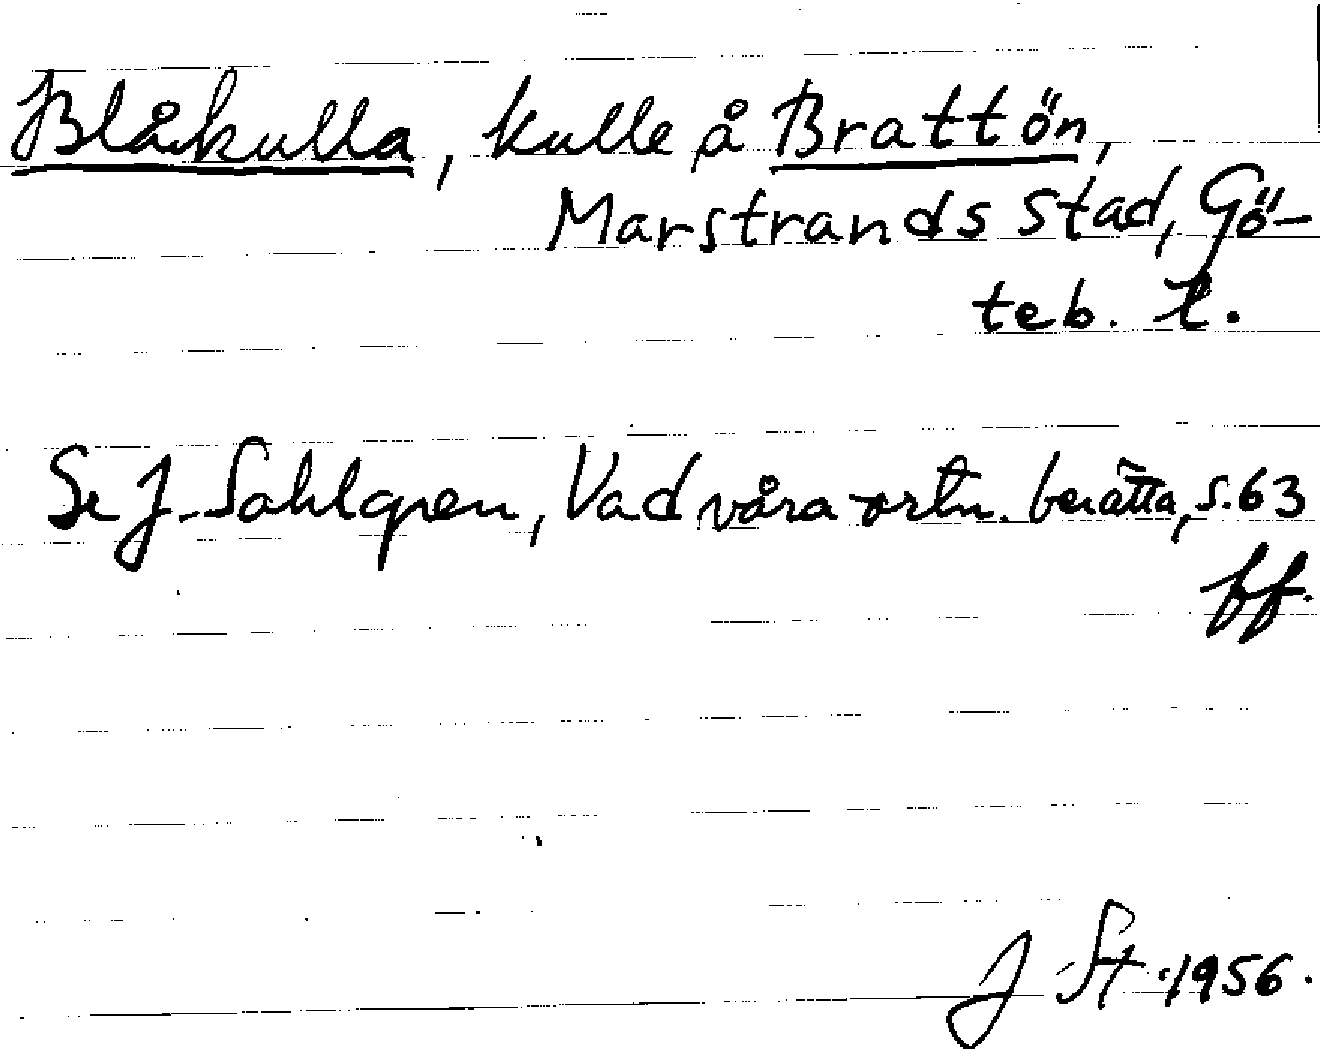 Blåkulla, kulle å Brattön,
Marstrands stad, Gö-
teb. l.
Se J. Sahlgren, Vad våra ortn. berätta, s. 63
ff.
J St. 1956.